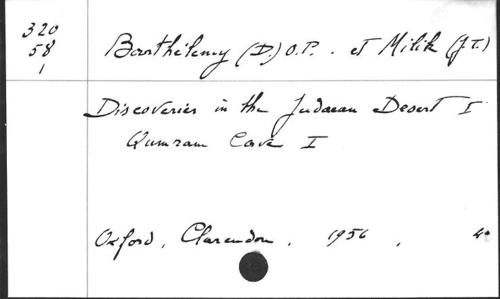 320
58
1
Barthélemy (D.) O.P. et Milik (J.T.)
Discoveries in the Judaean Desert I
Qumram Cave I
Oxford, Clarendon, 1956, 4°